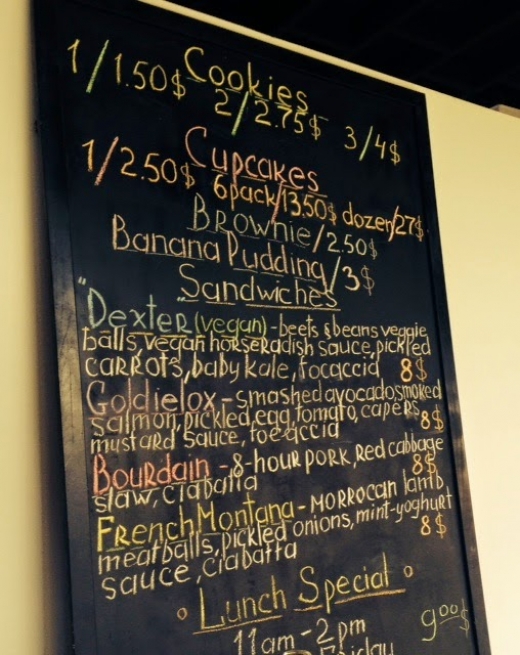 Cookies
1/1.50$ 2/2.75$ 3/4$
Cupcakes
1/2.50$ 6pack/13.50$ dozen/27$
Brownie/2.50$
Banana Pudding/3$
Sandwiches
"Dexter (vegan) - beets & beans veggie
balls, vegan horseradish sauce, pickled
carrots, baby kale, focaccia 8$
Goldielox - smashed avocado, smoked
salmon, pickled egg, tomato, capers,
mustard sauce, foeaccia 8$
Bourdain - 8-hour pork, Red cabbage
slaw, ciabatta 8$
French Montana - Morroccan lamb,
meatballs, pickled onions, mint-yoghurt
sauce, ciabatta 8$
Lunch Special
11am-2pm 9⁰⁰$
Friday